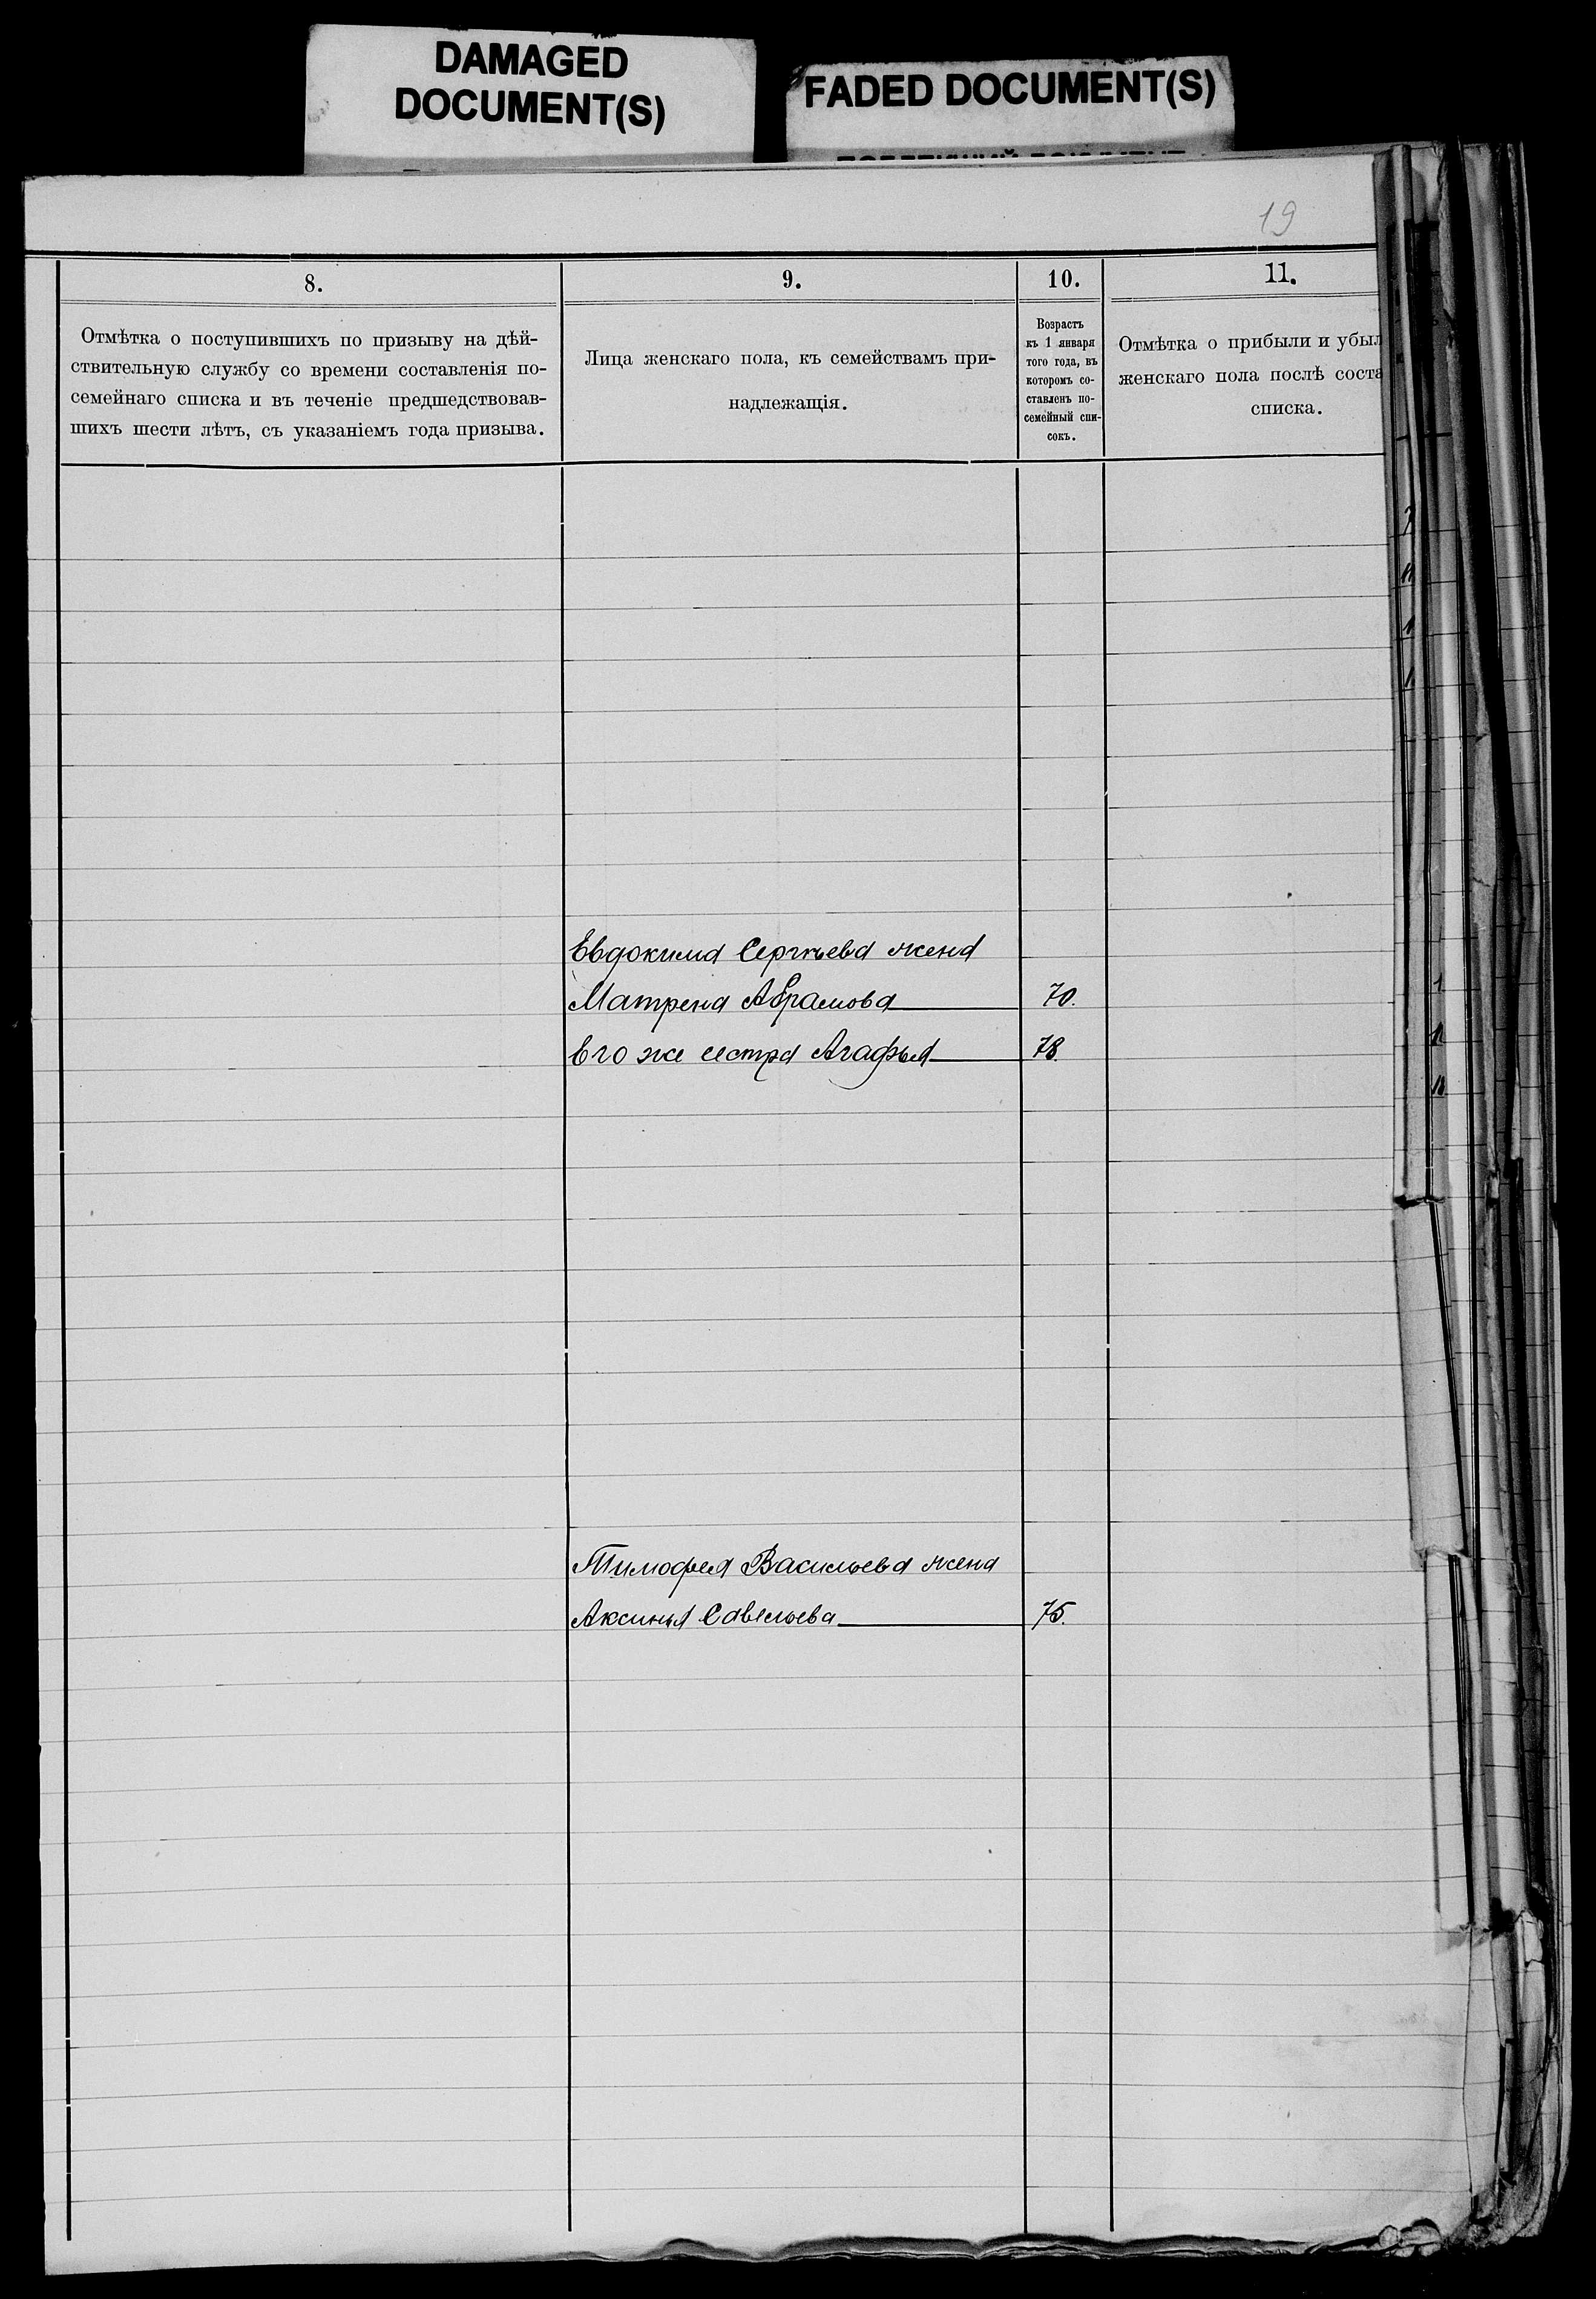 DAMAGED
DOCUMENT(S)
FADED DOCUMENT(S)
19
8.
9.
10.
11.
Отмѣтка о поступившихъ по призыву на дѣй-
ствительную службу со времени составленія по-
семейнаго списка и въ теченіе предшедствовав-
шихъ шести лѣтъ, съ указаніемъ года призыва.
Лица женскаго пола, къ семействамъ при-
надлежащія.
Возрастъ
къ 1 января
того года, въ
которомъ со-
ставленъ по-
семейный спи-
сокъ.
Отмѣтка о прибыли и убыл
женскаго пола послѣ соста
списка.
Евдокима Сергѣева жена
Матрена Абрамова 70.
Его же сестра Агафья 78.
Тимофея Васильева жена
Аксинья Савельева 75.